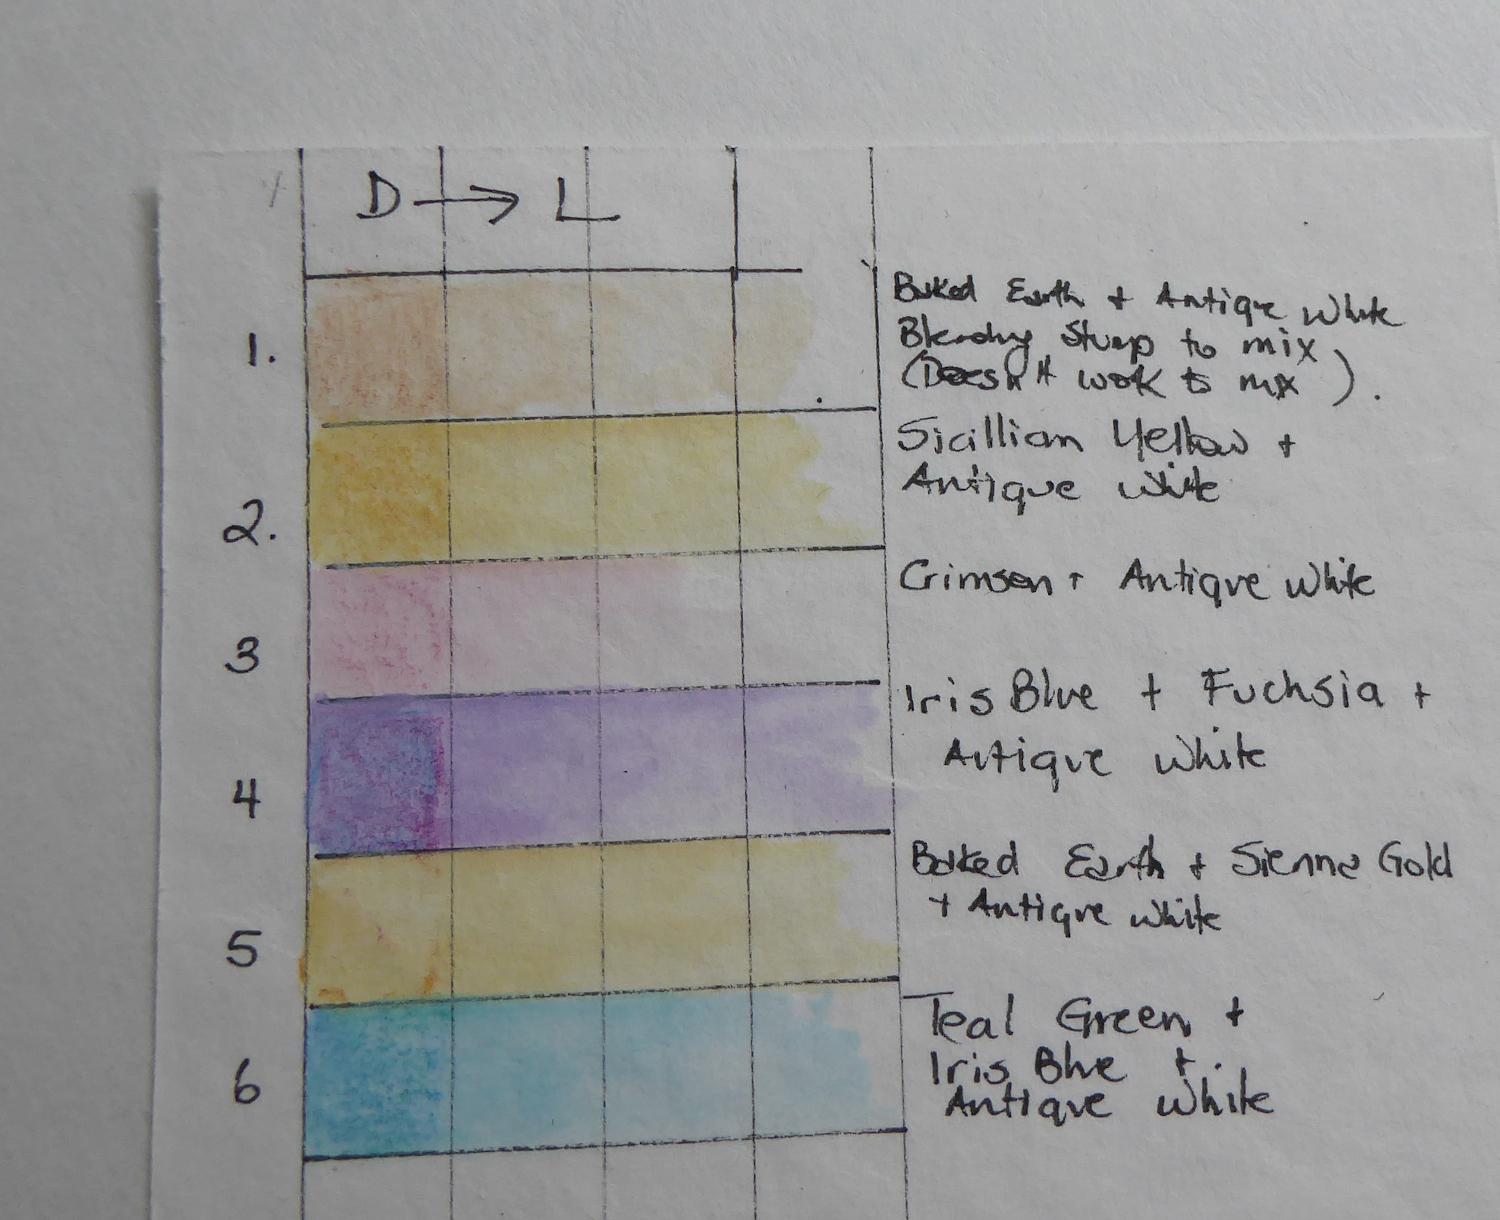 D → L
1.
Baked Earth + Antique White
Blending Stump to mix
(Doesn't work to mix).
2.
Sicillian Yellow +
Antique White
3
Crimson + Antique White
4
Iris Blue + Fuchsia +
Antique White
5
Baked Earth + Sienna Gold
+ Antique White
6
Teal Green +
Iris Blue +
Antique White